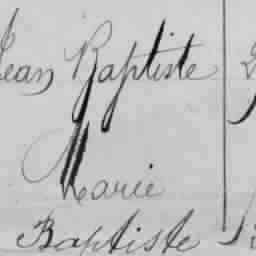 Jean Baptiste
Marie
Baptiste